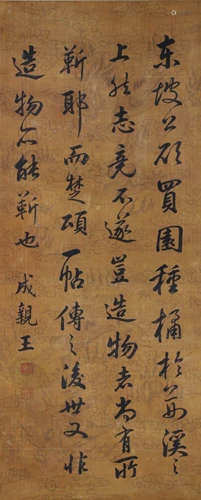 东坡公欲買園種橘於荆溪之
上然志竟不遂豈造物者尚有所
靳耶而楚頌一帖傳之後世又非
造物所能靳也 成親王